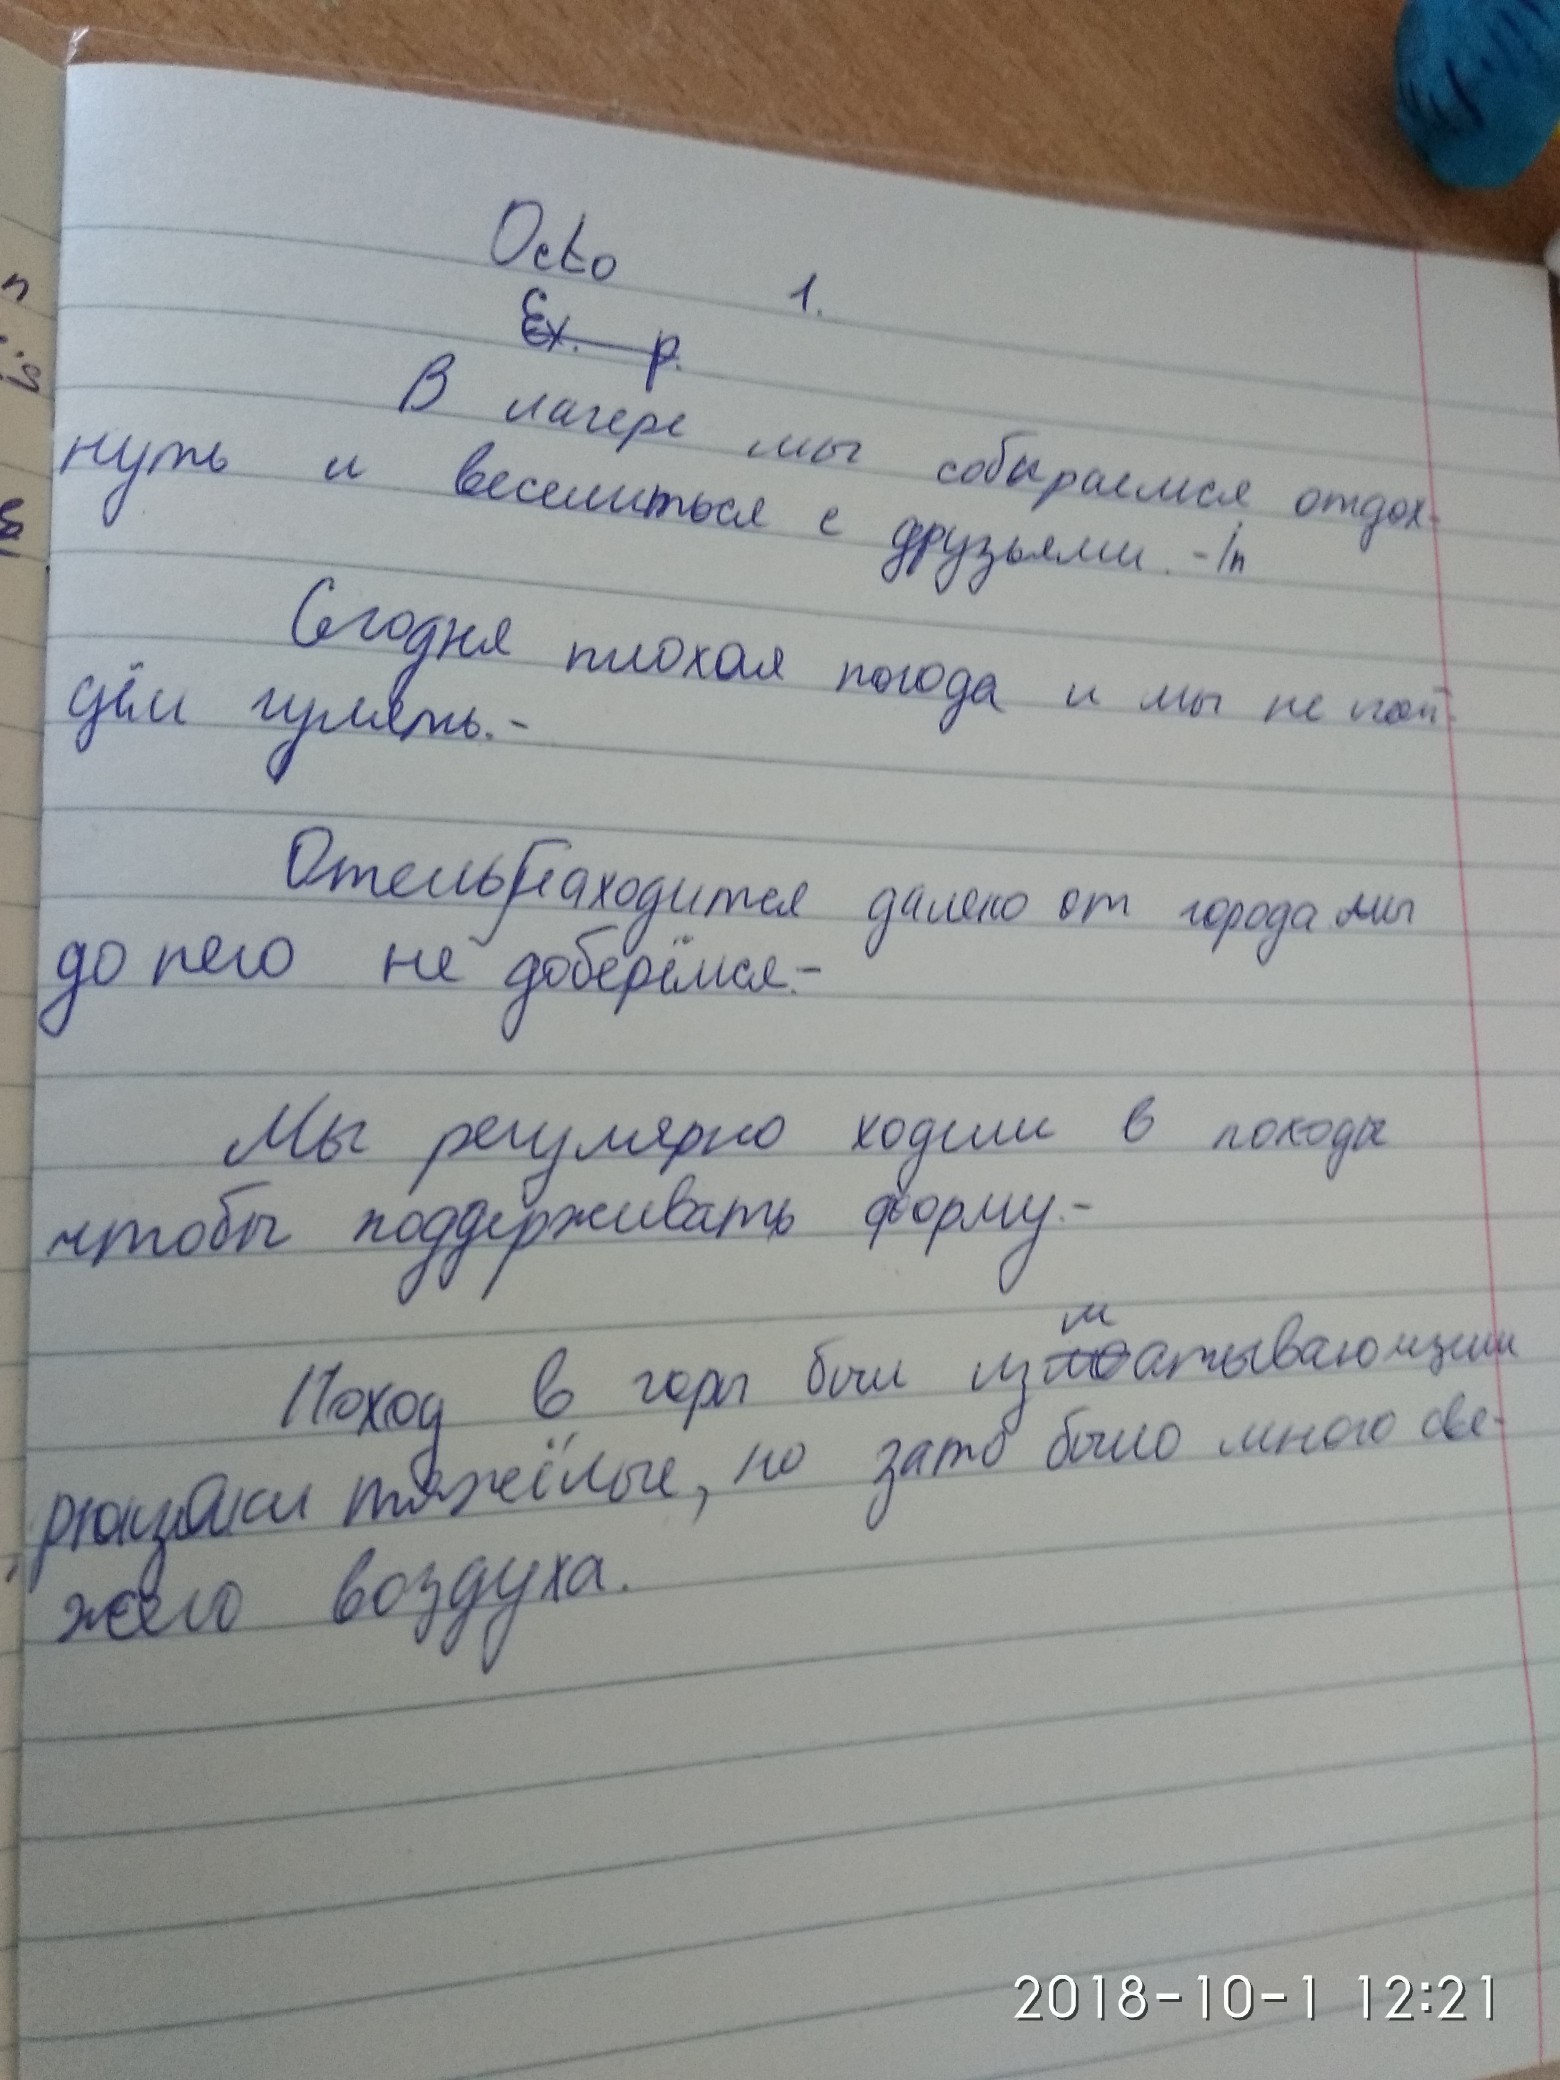 Octo 1.
Ex. p.
В лагере мы собираемся отдох-
нуть и веселиться с друзьями. - In
Сегодня плохая погода и мы не пой-
дём гулять. -
Отель находится далеко от города мы
до него не доберёмся. -
Мы регулярно ходили в походы
чтобы поддерживать форму. -
Поход в горы был изматывающим
рюкзаки тяжёлые, но зато было много све-
жего воздуха.
2018-10-1 12:21